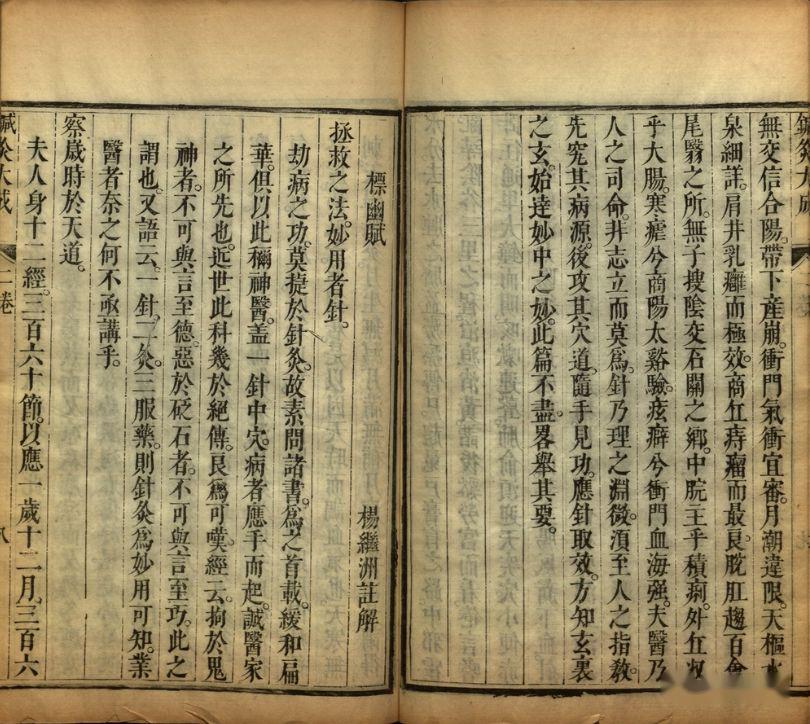 鍼灸大成
無交信合陽帶下產崩衝門氣衝宜審月潮違限天樞水
泉細詳肩井乳癰而極效商丘痔瘤而最良脫肛趨百會
尾翳之所無子搜陰交石關之鄉中脘主乎積痢外丘收
乎大腸寒瘧兮商陽太谿驗痃癖兮衝門血海強夫醫乃
人之司命非志立而莫爲針乃理之淵微須至人之指教
先究其病源後攻其穴道隨手見功應針取效方知玄裏
之玄始達妙中之妙此篇不盡畧舉其要
標幽賦 楊繼洲註解
拯救之法妙用者針。
劫病之功莫捷於針灸故素問諸書爲之首載緩和扁
華俱以此稱神醫蓋一針中穴病者應手而起誠醫家
之所先也近世此科幾於絕傳良爲可嘆經云拘於鬼
神者不可與言至德惡於砭石者不可與言至巧此之
謂也又語云一針二灸三服藥則針灸爲妙用可知業
醫者奈之何不亟講乎。
察歲時於天道。
夫人身十二經三百六十節以應一歲十二月三百六
鍼灸大成 二卷 八